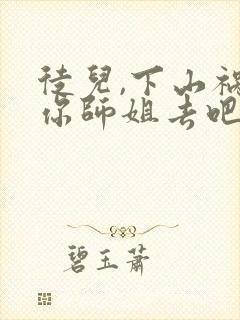 徒兒,下山禍
你師姐去吧
碧玉蕭